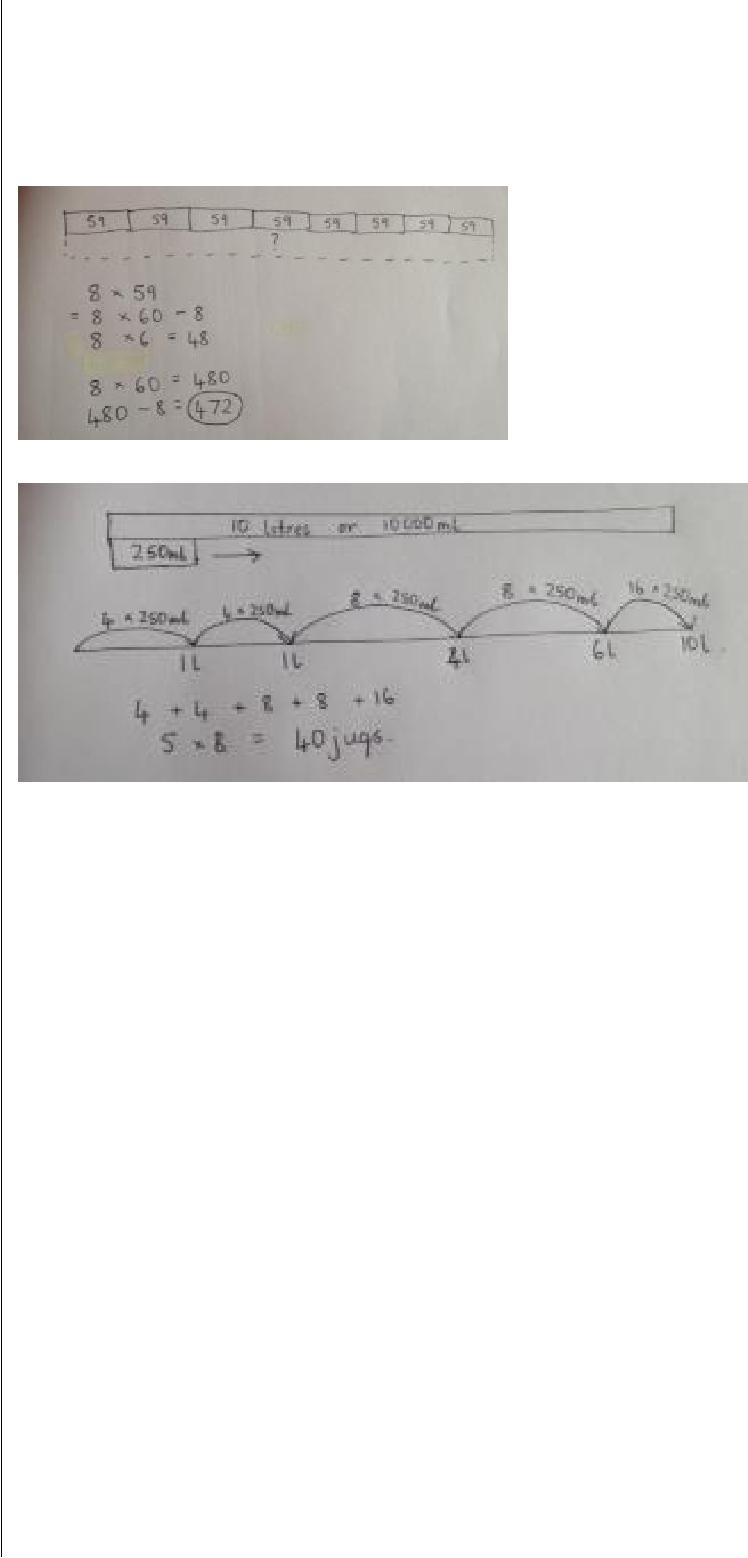 59 59 59 59 59 59 59 59
?
8 × 59
= 8 × 60 - 8
8 × 6 = 48
8 × 60 = 480
480 - 8 = 472
10 litres or 10000mL
250mL
4 × 250mL 4 × 250mL 8 × 250mL 8 × 250mL 16 × 250mL
1L 1L 4L 6L 10L
4 + 4 + 8 + 8 + 16
5 × 8 = 40 jugs.